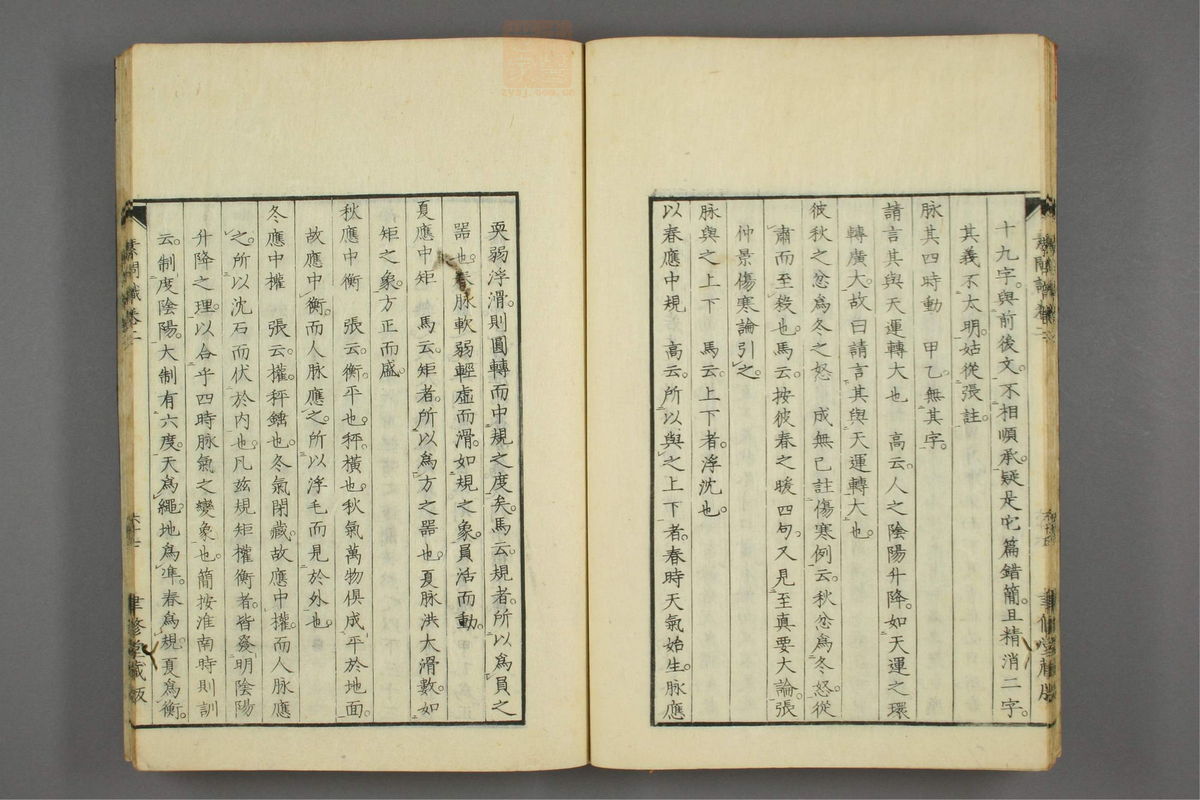 十九字。與前後文。不相順承。疑是它篇錯簡。且精消二字。
其義不太明。姑從張註。
脉其四時動　甲乙。無其字。
請言其與天運轉大也　高云。人之陰陽升降。如天運之環
轉廣大。故曰請言其與天運轉大也。
彼秋之忿爲冬之怒　成無己註傷寒例云。秋忿爲冬怒。從
肅而至殺也。馬云。按彼春之暖四句。又見至真要大論。張
仲景傷寒論引之。
脉與之上下　馬云。上下者。浮沈也。
以春應中規　高云。所以與之上下者。春時天氣始生。脉應
耎弱浮滑。則圓轉而中規之度矣。馬云。規者。所以爲員之
器也。春脉軟弱輕虛而滑。如規之象。員活而動。
夏應中矩　馬云。矩者。所以爲方之器也。夏脉洪大滑數。如
矩之象。方正而盛。
秋應中衡　張云。衡。平也。秤橫也。秋氣萬物俱成。平於地面。
故應中衡。而人脉應之。所以浮毛而見於外也。
冬應中權　張云。權。秤錘也。冬氣閉藏。故應中權。而人脉應
之。所以沈石而伏於內也。凡茲規矩權衡者。皆發明陰陽
升降之理。以合乎四時脉氣之變象也。簡按淮南時則訓
云。制度陰陽。大制有六度。天爲繩。地爲準。春爲規。夏爲衡。
素問識卷二
聿修堂藏版